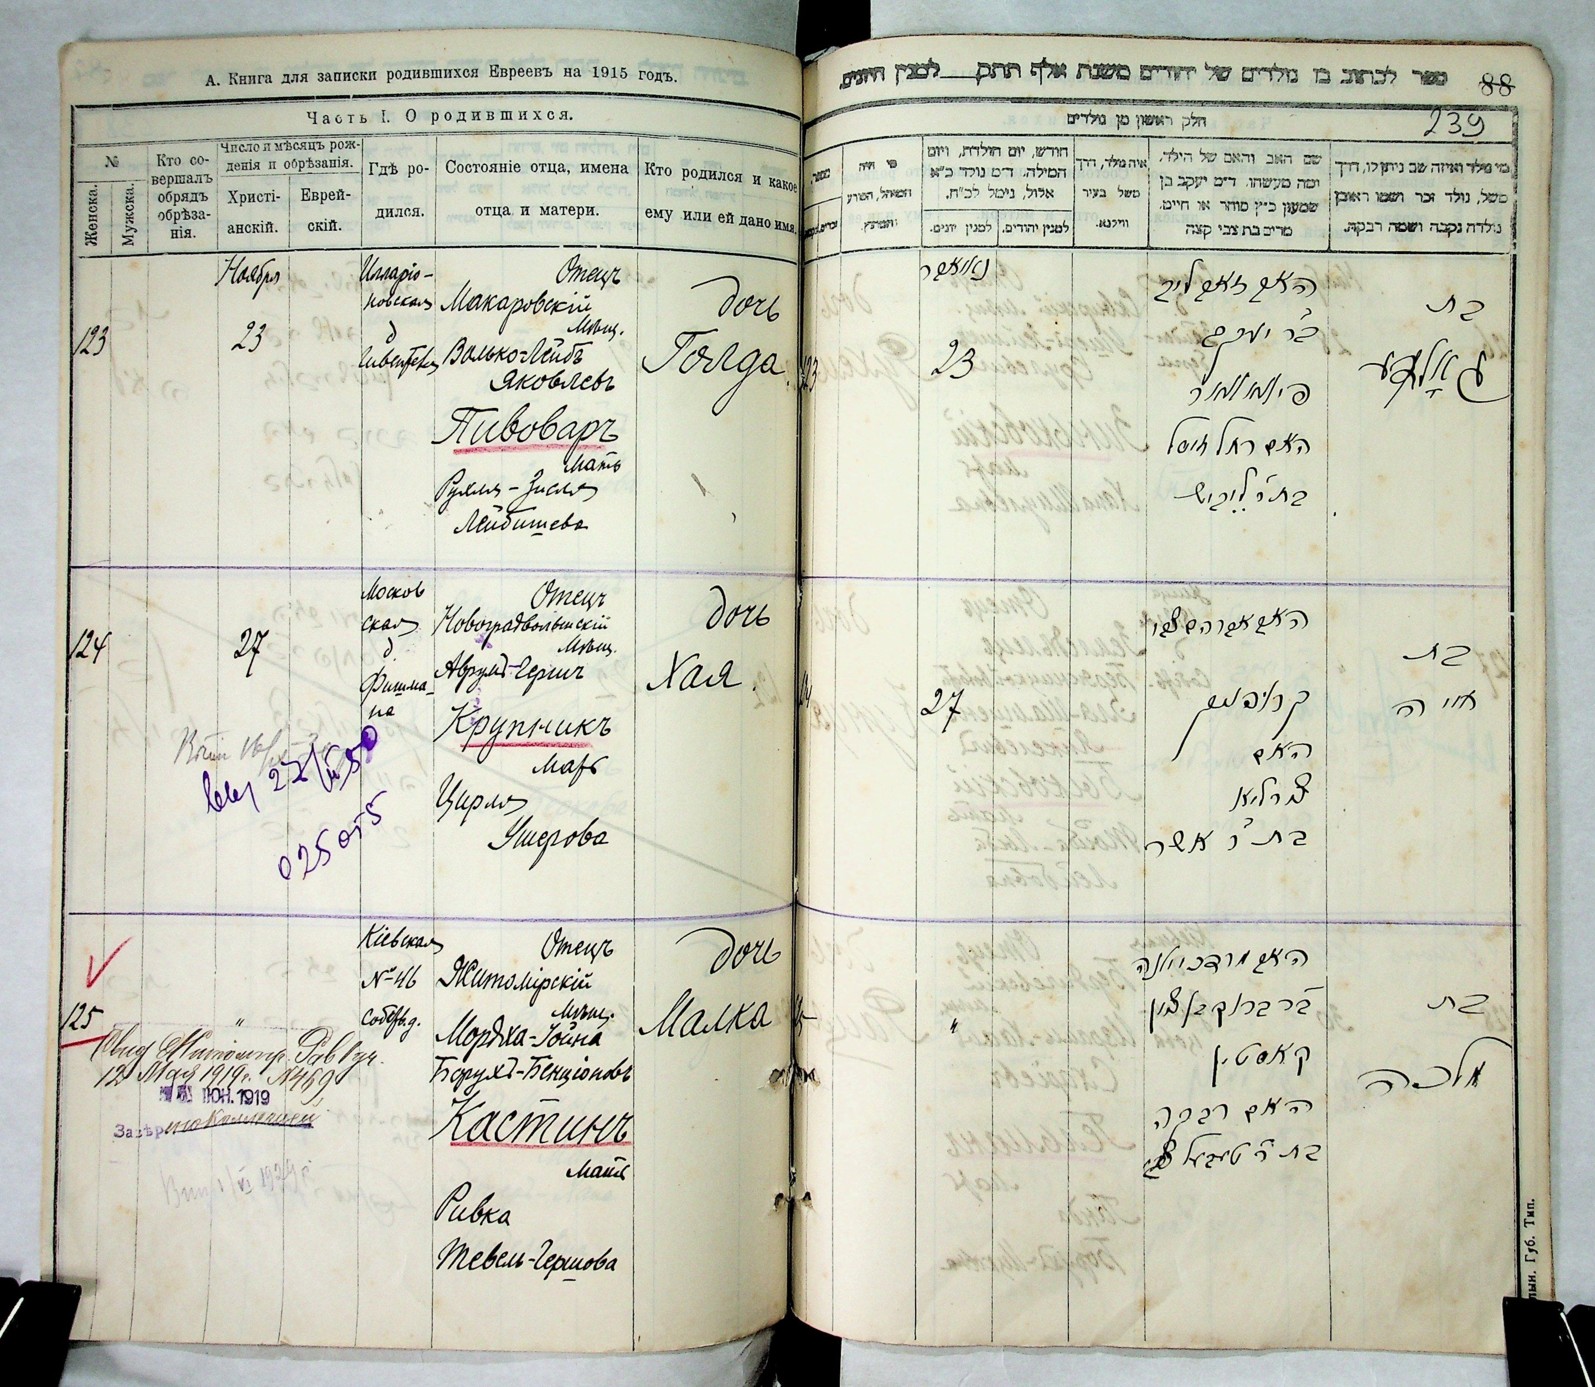 А. Книга для записки родившихся Евреевъ на 1915 годъ.
Часть I. О родившихся.
№
Женска.
Мужска.
Кто со-
вершалъ
обрядъ
обрѣза-
нія.
Число и мѣсяцъ рож-
денія и обрѣзанія.
Христі-
анскій.
Еврей-
скій.
Гдѣ ро-
дился.
Состояніе отца, имена
отца и матери.
Кто родился и какое
ему или ей дано имя.
123
Ноября
23
Илларіо-
новская
д
Отецъ
Макаровскій
Мѣщ.
Волько-Лейбъ
Яковлевъ
Пивоваръ
Мать
Рухля-Зисля
Лейбишева
дочь
Голда
124
27
Москов
ская
д.
Фишма-
на
Отецъ
Новоградволынскій
Мѣщ.
Аврумъ-Гершъ
Крупникъ
Мать
Цирля
Ушерова
дочь
Хая
025055
125
"
Кіевская
№ 46
собств.д.
Отецъ
Житомірскій
Мѣщ.
Мордха-Іойна
Борухъ-Бенціоновъ
Кастинъ
Мать
Ривка
Тевель-Гершова
дочь
Малка
12 Мая 1919г. №469
ІЮН. 1919
88
239
ספר לכתוב בו נולדים של יהודים משנת אלף תתק למנין היונים
חלק ראשון מן נולדים
מי נולד ואיזה שם ניתן לו, דרך
משל, נולד זכר ושמו ראובן
נולדה נקבה ושמה רבקה.
שם האב והאם של הילד,
ומה מעשהו. ד״מ יעקב בן
שמעון כ״ץ סוחר או חייט.
מרים בת צבי קצה
איה נולד, דרך
משל בעיר
ווילנא.
חודש, יום הולדת, ויום
המילה. ד״מ נולד כ״א
אלול, נימל לכ״ח.
למנין יהודים.
למנין יונים.
מי היה
המוהל, הפורע
והמוצץ.
מספר.
בת
גאָלדע
האב וואלף לייב
ב״ר יעקב
פיוואוואר
האם רחל זיסל
בת ר׳ לייביש
נאיאבר
23
בת
חיה
האב אברהם צבי
קרופניק
האם
צירליא
בת ר׳ אשר
27
בת
מלכה
האב מרדכי יונה
ב״ר ברוך בן ציון
קאסטין
האם רבקה
בת ר׳ טעביל צבי
"
лын. Губ. Тип.